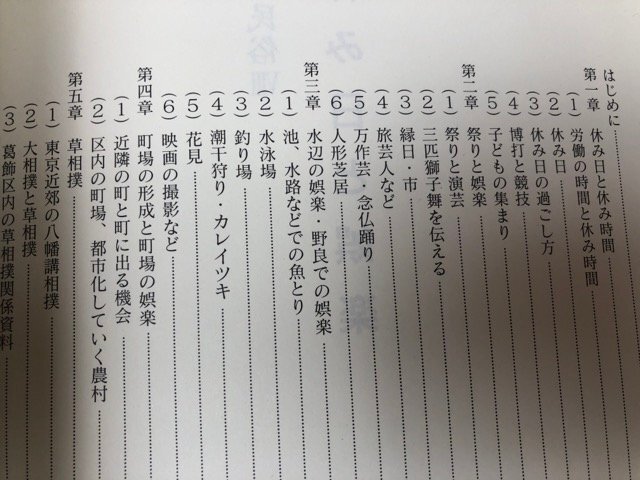 はじめに
第一章 休み日と休み時間
(1) 労働の時間と休み時間
(2) 休み日
(3) 休み日の過ごし方
(4) 博打と競技
(5) 子どもの集まり
第二章 祭りと娯楽
(1) 祭りと演芸
(2) 三匹獅子舞を伝える
(3) 縁日・市
(4) 旅芸人など
(5) 万作芸・念仏踊り
(6) 人形芝居
第三章 水辺の娯楽・野良での娯楽
(1) 池、水路などでの魚とり
(2) 水泳場
(3) 釣り場
(4) 潮干狩り・カレイツキ
(5) 花見
(6) 映画の撮影など
第四章 町場の形成と町場の娯楽
(1) 近隣の町と町に出る機会
(2) 区内の町場、都市化していく農村
第五章 草相撲
(1) 東京近郊の八幡講相撲
(2) 大相撲と草相撲
(3) 葛飾区内の草相撲関係資料